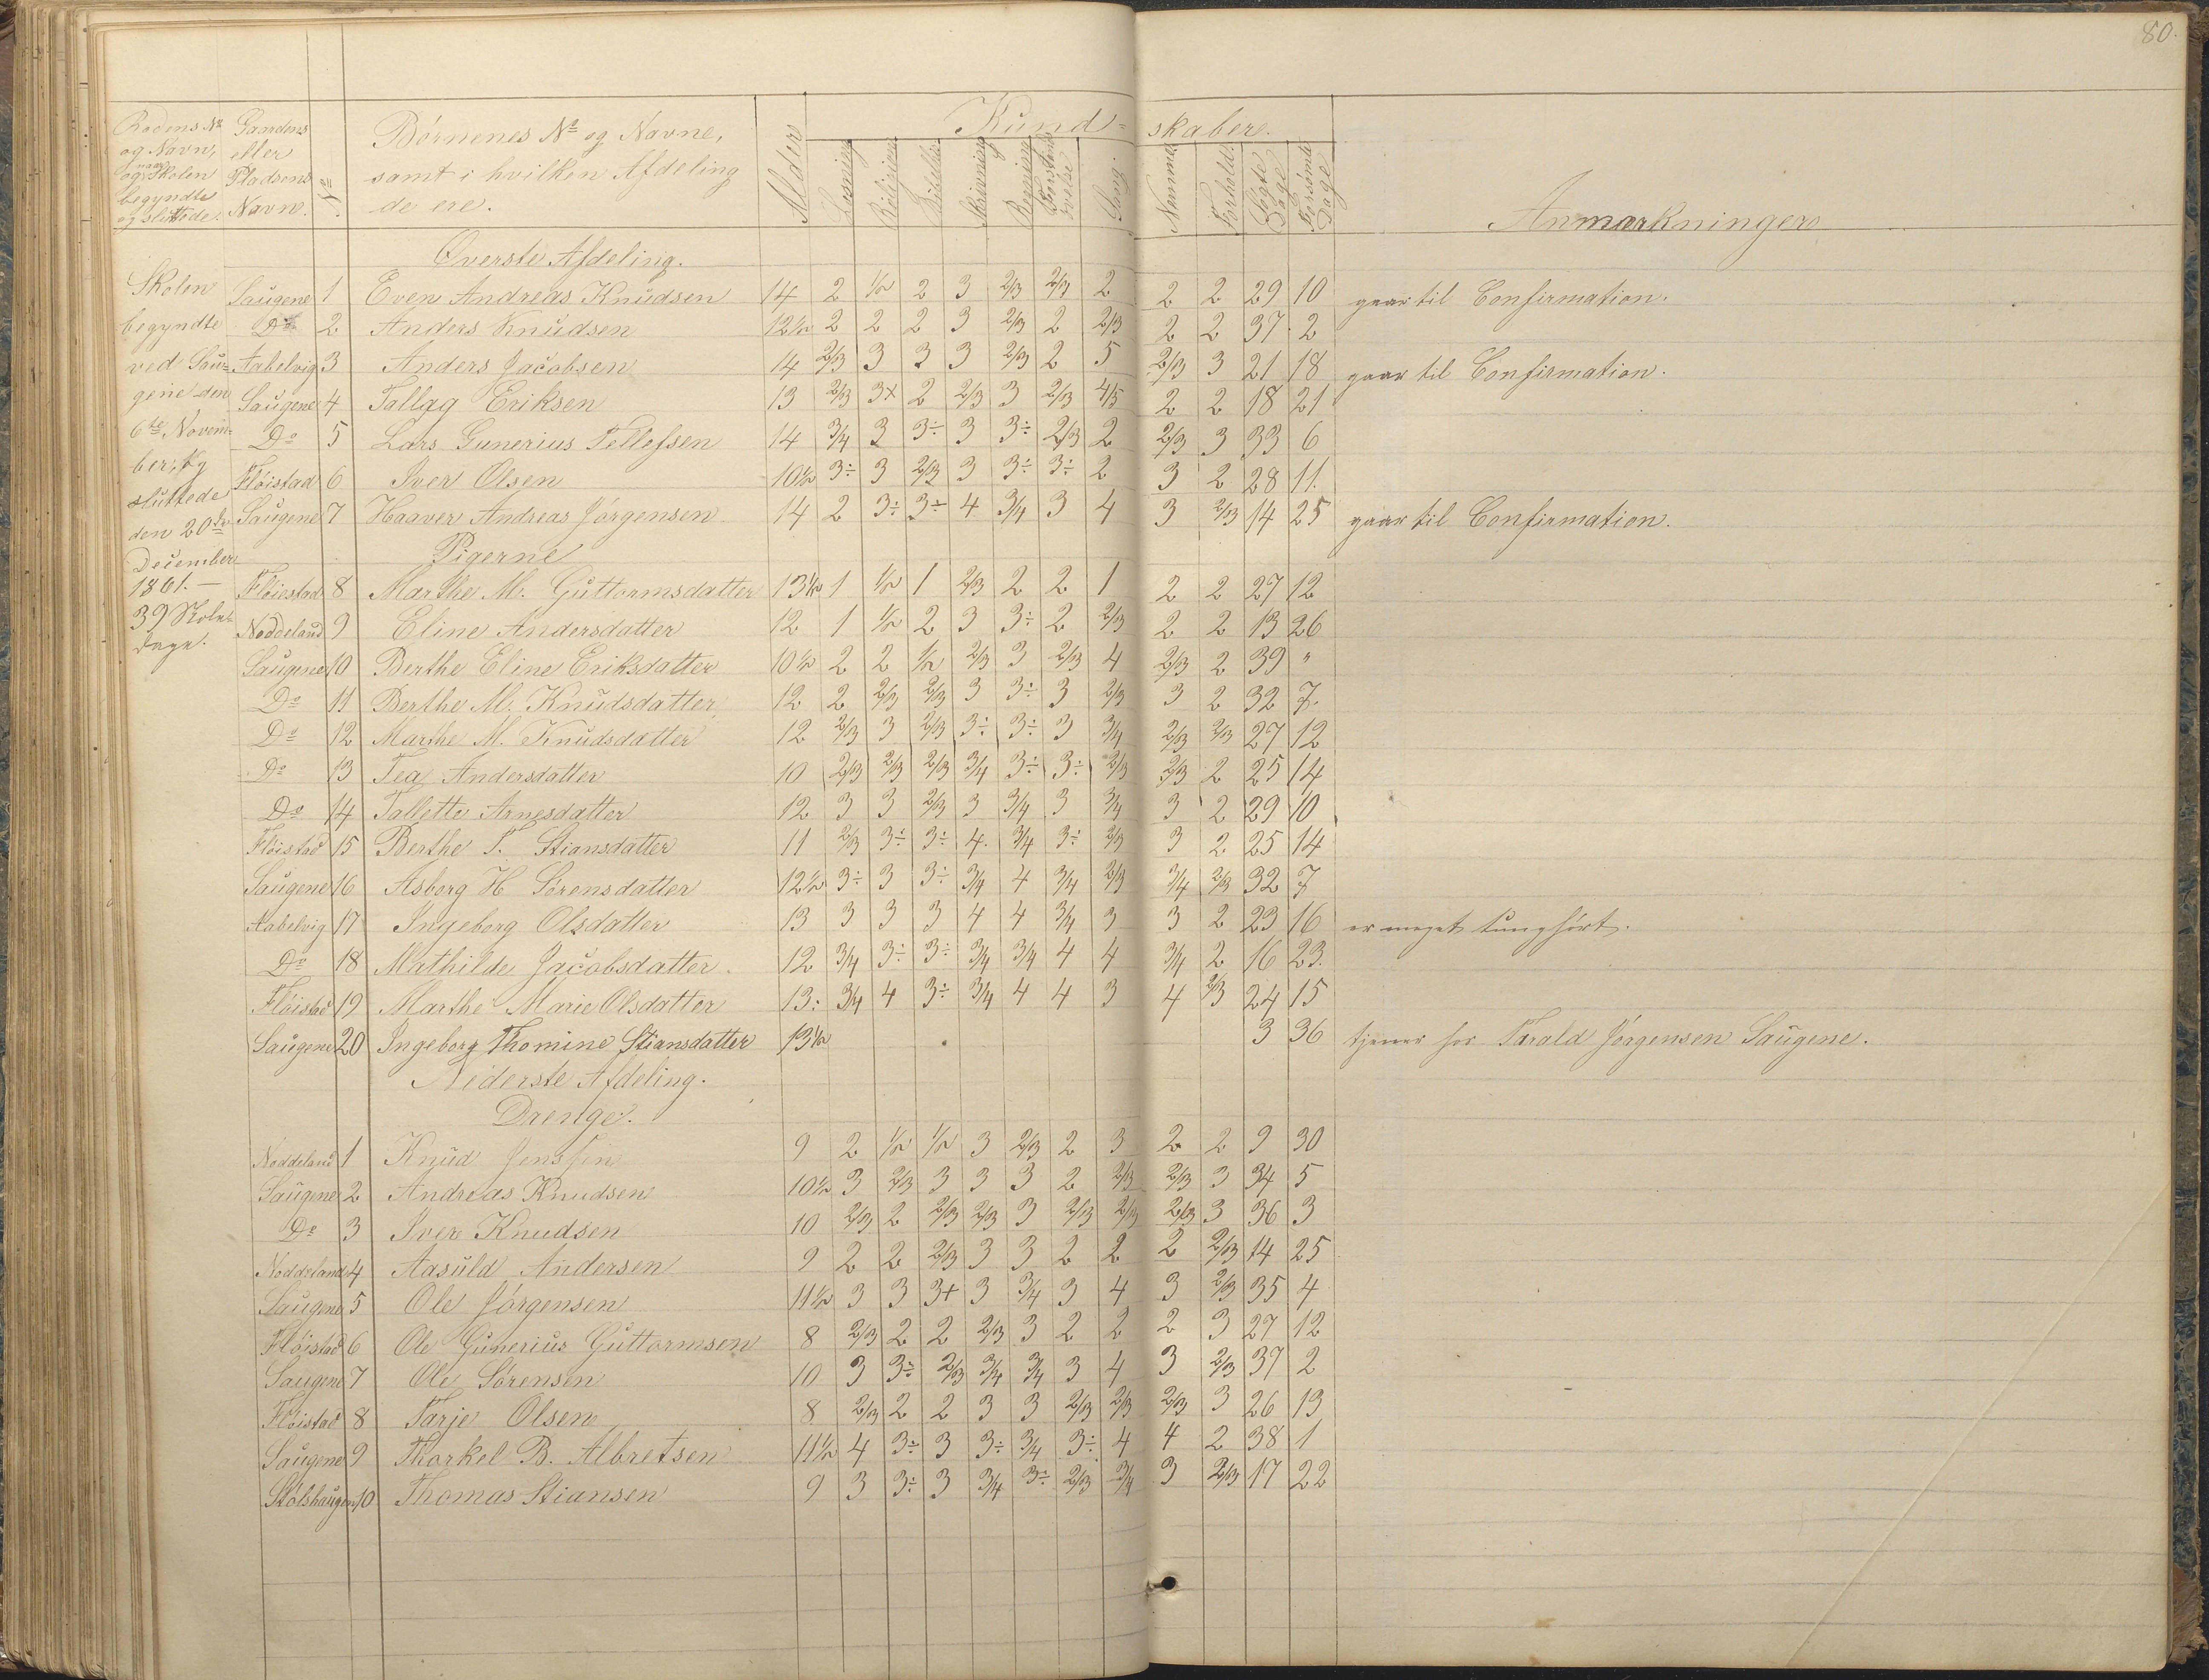 80.
Rodens No og Navn, og naar Skolen begyndte og sluttede. | Gaardens eller Pladsens Navn. | No | Børnenes No og Navne, samt i hvilken Afdeling de ere. | Alder | Kundskaber. | Læsning | Religion | Bibelhist | Skrivning | Regning | Forstands øvelse | Sang. | Nemme | Forhold. | Søgte Dage | Forsømte Dage | Anmærkninger
Øverste Afdeling.
Skolen | Saugene | 1 | Even Andreas Knudsen | 14 | 2 | 1/2 | 2 | 3 | 2/3 | 2/3 | 2 | 2 | 2 | 29 | 10 | gaar til Confirmation.
begyndte | Do | 2 | Anders Knudsen | 12½ | 2 | 2 | 2 | 3 | 2/3 | 2 | 2/3 | 2 | 2 | 37 | 2
ved Sau= | Aabelvig | 3 | Anders Jacobsen | 14 | 2/3 | 3 | 3 | 3 | 2/3 | 2 | 5 | 2/3 | 3 | 21 | 18 | gaar til Confirmation.
gene den | Saugene | 4 | Tallag Eriksen | 13 | 2/3 | 3+ | 2 | 2/3 | 3 | 2/3 | 4/5 | 2 | 2 | 18 | 21
6te Novem- | Do | 5 | Lars Gunerius Tellefsen | 14 | 3/4 | 3 | 3÷ | 3 | 3÷ | 2/3 | 2 | 2/3 | 3 | 33 | 6
ber, og | Fløistad | 6 | Iver Olsen | 10½ | 3÷ | 3 | 2/3 | 3 | 3÷ | 3÷ | 2 | 3 | 2 | 28 | 11.
sluttede den 20de | Saugene | 7 | Haaver Andreas Jørgensen | 14 | 2 | 3÷ | 3÷ | 4 | 3/4 | 3 | 4 | 3 | 2/3 | 14 | 25 | gaar til Confirmation.
December | Pigerne
1861.— | Fløiestad | 8 | Marthe M. Guttormsdatter | 13½ | 1 | 1/2 | 1 | 2/3 | 2 | 2 | 1 | 2 | 2 | 27 | 12
39 Skole- | Noddeland | 9 | Eline Andersdatter | 12 | 1 | 1/2 | 2 | 3 | 3÷ | 2 | 2/3 | 2 | 2 | 13 | 26
dage. | Saugene | 10 | Berthe Eline Eriksdatter | 10½ | 2 | 2 | 1/2 | 2/3 | 3 | 2/3 | 4 | 2/3 | 2 | 39 | "
Do | 11 | Berthe M. Knudsdatter | 12 | 2 | 2/3 | 2/3 | 3 | 3÷ | 3 | 2/3 | 3 | 2 | 32 | 7.
Do | 12 | Marthe M. Knudsdatter | 12 | 2/3 | 3 | 2/3 | 3÷ | 3÷ | 3 | 3/4 | 2/3 | 2/3 | 27 | 12
Do | 13 | Tea Andersdatter | 10 | 2/3 | 2/3 | 2/3 | 3/4 | 3÷ | 3÷ | 2/3 | 2/3 | 2 | 25 | 14
Do | 14 | Tallette Arnesdatter | 12 | 3 | 3 | 2/3 | 3 | 3/4 | 3 | 3/4 | 3 | 2 | 29 | 10
Fløistad | 15 | Berthe T. Stiansdatter | 11 | 2/3 | 3÷ | 3÷ | 4. | 3/4 | 3÷ | 2/3 | 3 | 2 | 25 | 14
Saugene | 16 | Asborg H Sørensdatter | 12½ | 3÷ | 3 | 3÷ | 3/4 | 4 | 3/4 | 2/3 | 3/4 | 2/3 | 32 | 7
Aabelvig | 17 | Ingeborg Olsdatter | 13 | 3 | 3 | 3 | 4 | 4 | 3/4 | 3 | 3 | 2 | 23 | 16 | er meget tunghørt.
Do | 18 | Mathilde Jacobsdatter. | 12 | 3/4 | 3÷ | 3÷ | 3/4 | 3/4 | 4 | 4 | 3/4 | 2 | 16 | 23.
Fløistad | 19 | Marthe Marie Olsdatter | 13. | 3/4 | 4 | 3÷ | 3/4 | 4 | 4 | 3 | 4 | 2/3 | 24 | 15
Saugene | 20 | Ingeborg Thomine Stiansdatter | 13½ | 3 | 36 | tjener hos Tarald Jørgensen Saugene.
Nederste Afdeling.
Drenge.
Noddeland | 1 | Knud Jenssen | 9 | 2 | 1/2 | 1/2 | 3 | 2/3 | 2 | 3 | 2 | 2 | 9 | 30
Saugene | 2 | Andreas Knudsen | 10½ | 3 | 2/3 | 3 | 3 | 3 | 2 | 2/3 | 2/3 | 3 | 34 | 5
Do | 3 | Iver Knudsen | 10 | 2/3 | 2 | 2/3 | 2/3 | 3 | 2/3 | 2/3 | 2/3 | 3 | 36 | 3
Noddeland | 4 | Aasuld Andersen | 9 | 2 | 2 | 2/3 | 3 | 3 | 2 | 2 | 2 | 2/3 | 14 | 25
Saugene | 5 | Ole Jørgensen | 11½ | 3 | 3 | 3+ | 3 | 3/4 | 3 | 4 | 3 | 2/3 | 35 | 4
Fløistad | 6 | Ole Gunerius Guttormsen | 8 | 2/3 | 2 | 2 | 2/3 | 3 | 2 | 2 | 2 | 3 | 27 | 12
Saugene | 7 | Ole Sørensen | 10 | 3 | 3÷ | 2/3 | 3/4 | 3/4 | 3 | 4 | 3 | 2/3 | 37 | 2
Fløistad | 8 | Tarje Olsen | 8 | 2/3 | 2 | 2 | 3 | 3 | 2/3 | 2/3 | 2/3 | 3 | 26 | 13
Saugene | 9 | Thorkel B. Albretsen | 11½ | 4 | 3÷ | 3 | 3÷ | 3/4 | 3÷ | 4 | 4 | 2 | 38 | 1
Stølshaugen | 10 | Thomas Stiansen | 9 | 3 | 3÷ | 3 | 3/4 | 3÷ | 2/3 | 3/4 | 3 | 2/3 | 17 | 22